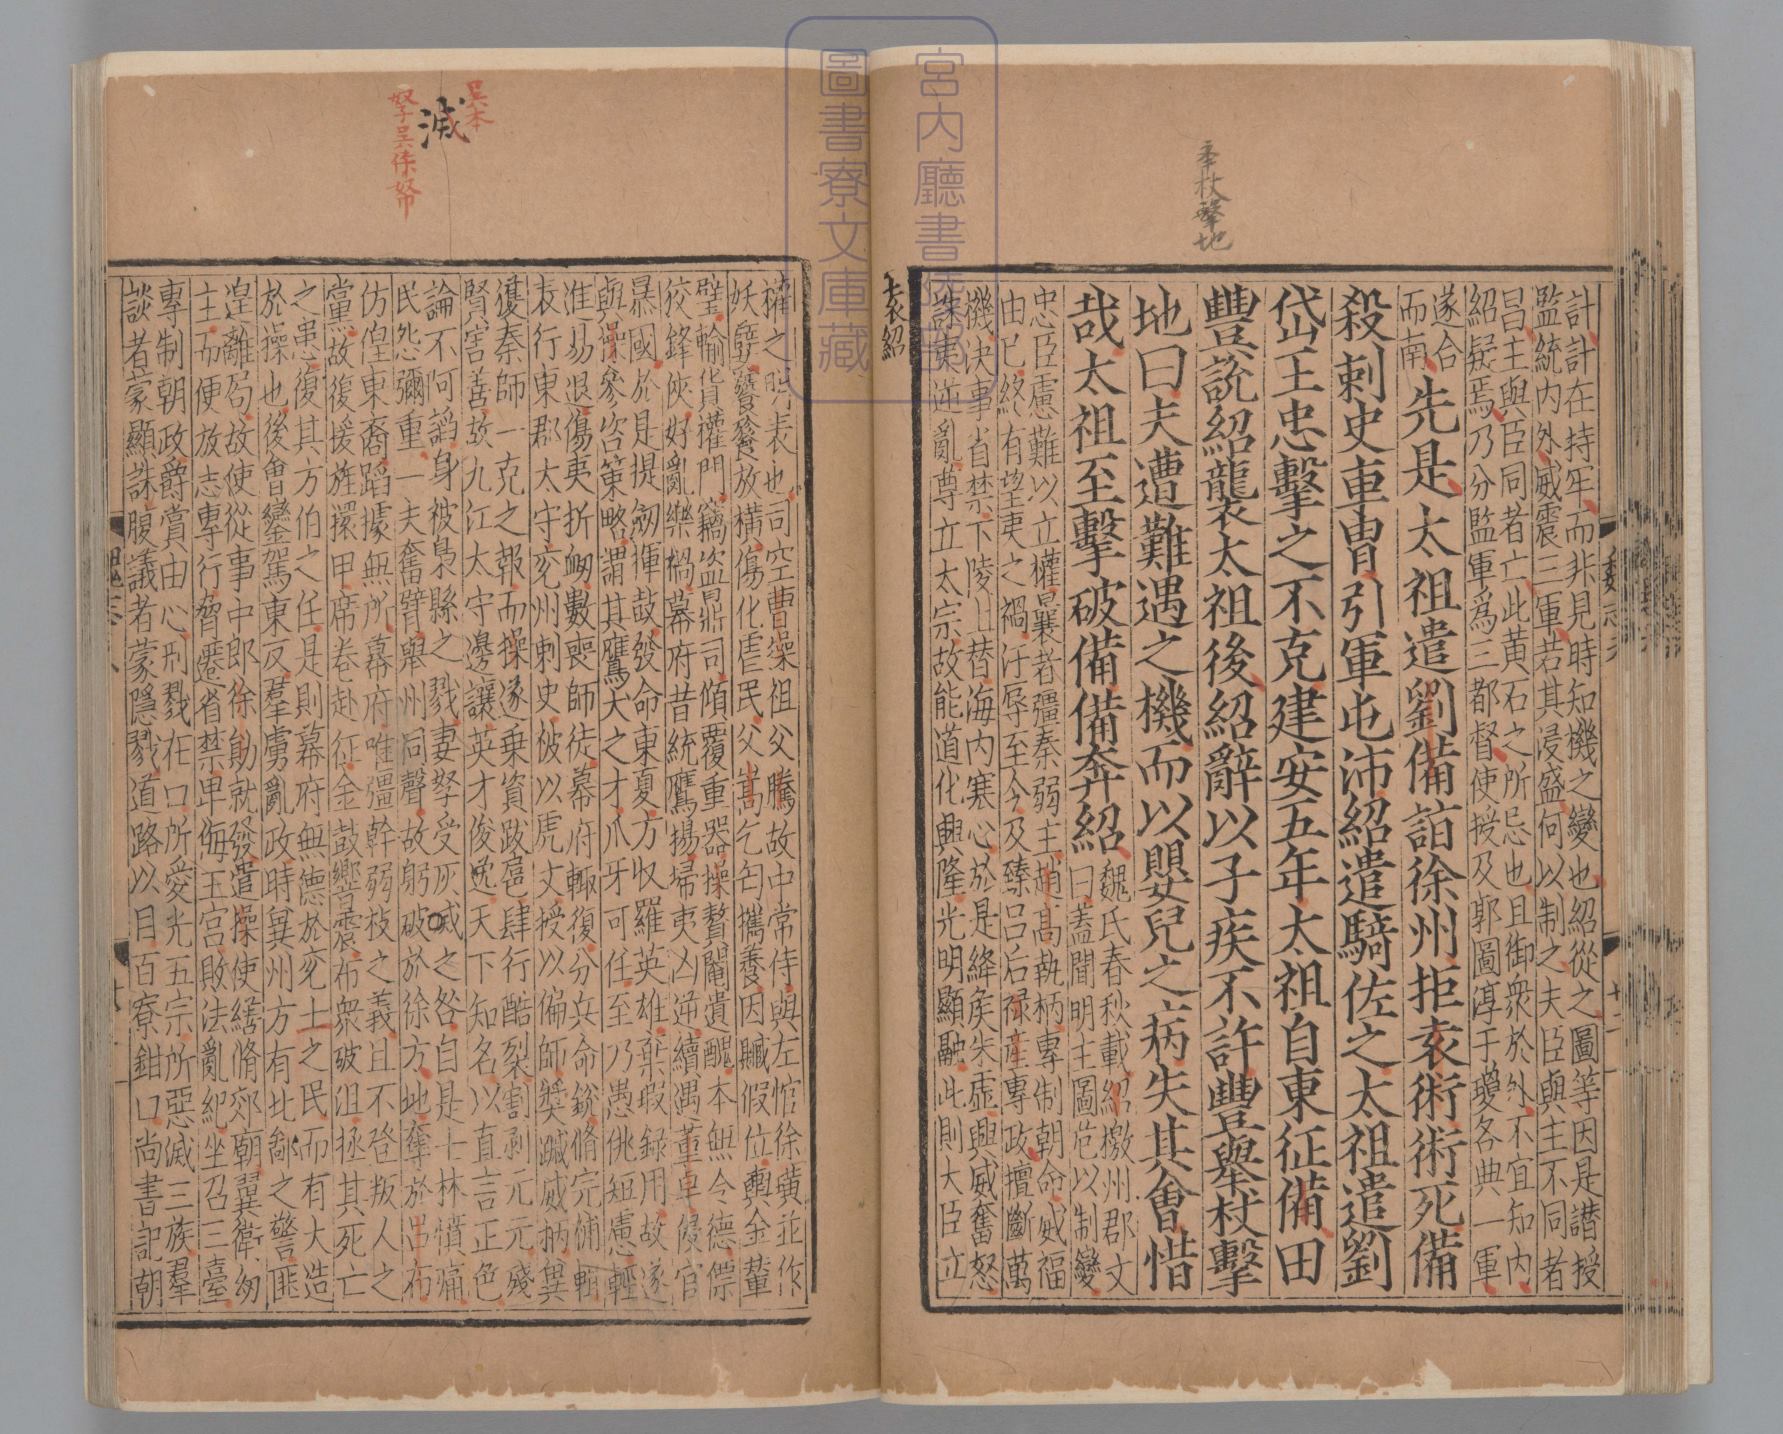 計計在持牢而非見時知機之變也紹從之圖等因是譖授
監統內外威震三軍若其浸盛何以制之夫臣與主不同者
昌主與臣同者亡此黃石之所忌也且御衆於外不宜知內
紹疑焉乃分監軍爲三都督使授及郭圖淳于瓊各典一軍
遂合
而南
先是太祖遣劉備詣徐州拒袁術術死備
殺刺史車胄引軍屯沛紹遣騎佐之太祖遣劉
岱王忠擊之不克建安五年太祖自東征備田
豐說紹襲太祖後紹辭以子疾不許豐舉杖擊
地曰夫遭難遇之機而以嬰兒之病失其會惜
哉太祖至擊破備備奔紹
魏氏春秋載紹檄州郡文
曰蓋聞明主圖危以制變
忠臣慮難以立權曩者彊秦弱主趙高執柄專制朝命威福
由己終有望夷之禍汙辱至今及臻呂后祿產專政擅斷萬
機決事省禁下陵上替海內寒心於是絳侯朱虛興威奮怒
誅夷逆亂尊立太宗故能道化興隆光明顯融此則大臣立
袁紹
權之明表也司空曹操祖父騰故中常侍與左悺徐璜並作
妖孽饕餮放橫傷化虐民父嵩乞匄攜養因贓假位輿金輦
璧輸貨權門竊盜鼎司傾覆重器操贅閹遺醜本無令德僄
狡鋒俠好亂樂禍幕府昔統鷹揚掃夷凶逆續遇董卓侵官
暴國於是提劒揮鼓發命東夏方收羅英雄棄瑕錄用故遂
與操參咨策略謂其鷹犬之才爪牙可任至乃愚佻短慮輕
進易退傷夷折衂數喪師徒幕府輒復分兵命銳脩完補輯
表行東郡太守兗州刺史被以虎文授以偏師獎蹴威柄冀
獲秦師一克之報而操遂乘資跋扈肆行酷裂割剥元元殘
賢害善故九江太守邊讓英才俊逸天下知名以直言正色
論不阿諂身被梟縣之戮妻孥受灰滅之咎自是士林憤痛
民怨彌重一夫奮臂舉州同聲故躬破於徐方地奪於呂布
仿偟東裔蹈據無所幕府唯彊幹弱枝之義且不登叛人之
黨故後援旌擐甲席卷赴征金鼓響震布衆破沮拯其死亡
之患復其方伯之任是則幕府無德於兗土之民而有大造
於操也後會鑾駕東反羣虜亂政時冀州方有北鄙之警匪
遑離局故使從事中郎徐勛就發遣操使繕脩郊廟翼衛幼
主而便放志專行脅遷省禁卑侮王宮敗法亂紀坐召三臺
專制朝政爵賞由心刑戮在口所愛光五宗所惡滅三族羣
談者蒙顯誅腹議者蒙隱戮道路以目百寮鉗口尚書記朝
奉杖擊地
吳本
滅
孥吳作帑
宮內廳書陵部
圖書寮文庫藏